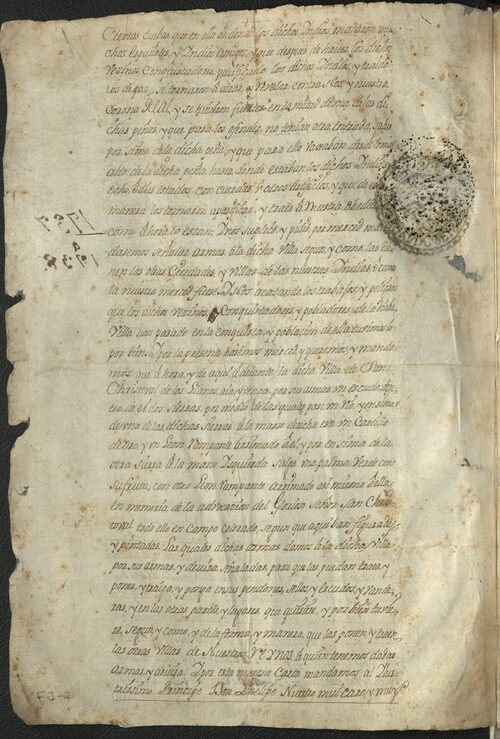 Ciertas cubas que en ella donde los dichos Yndios, mataron mu-
chos Españoles, y Yndios amigos, y que despues de hauer los dichos
Vezinos, Conquistadores, pacificado los dichos Yndios, y traido-
los de paz, se tornaron à alzar, y Reuelar contra Nos y nuestra
Corona Real, y se hizieron fuertes en lo mismo de vna de las di-
chas peñas, y que para los ofender, no tenian otra entrada, salvo
por sima de la dicha peña, y que para ello
de la dicha, peña, hasta donde estaban los dichos Yndios
echo colgados, con cuerdas, y otros artificios, y que de esta
manera los tornaron apasiguar, y traer à Nuestra obediencia
como à hora lo estan; Y nos Suplicó, y pidió por merced man-
dasemos Señalar armas, à la dicha Villa segun, y como, las tie-
nen las otras Ciudades, y Villas de las nuestras Yndias, ò como
la nuestra merced fuere. Y Nos, acatando los trabajos, y peligros
que los dichos vezinos, y Conquistadores, y pobladores de la dicha
Villa han pasado en la conquista, y poblacion de ella tuvimoslo
por bien; Y por la presente hasemos merced, y queremos, y manda-
mos que à hora, y de aqui à delante, la dicha Villa de San
Christoval de los Llanos, aia, y tenga, por sus armas vn escudo den-
tro de el dos Sierras, por medio de las quales pase vn Rio, y en sima
de vna de las dichas sierras à la mano derecha este vn Castillo
de oro, y vn Leon rampante arrimado à el, y por en sima de la
otra Sierra à la mano Izquierda Salga vna palma Verde con
su fruta, con otro Leon rampante arrimado asi mismo à ella
en memoria de la advocacion del Glorioso Señor San Chris-
toval todo ello en Campo colorado, segun que aqui ban figuradas,
y pintadas. Las quales dichas armas damos à la dicha Villa
por sus armas, y deviza Señaladas, para que las puedan traer, y
poner, y traiga, y ponga en sus pendones, sellos, y escudos, y vande-
ras, y en las otras partes, y lugares, que quisiere, y por bien tuvie-
re, segun, y como, y de la forma, y manera, que las ponen, y traen
las otras Villas de Nuestros REYNOS, à quien tenemos dadas
armas, y deviza. Y por esta nuestra Carta mandamos, al Ilus-
trissimo Principe Don Phelipe Nuestro muy caro, y muy